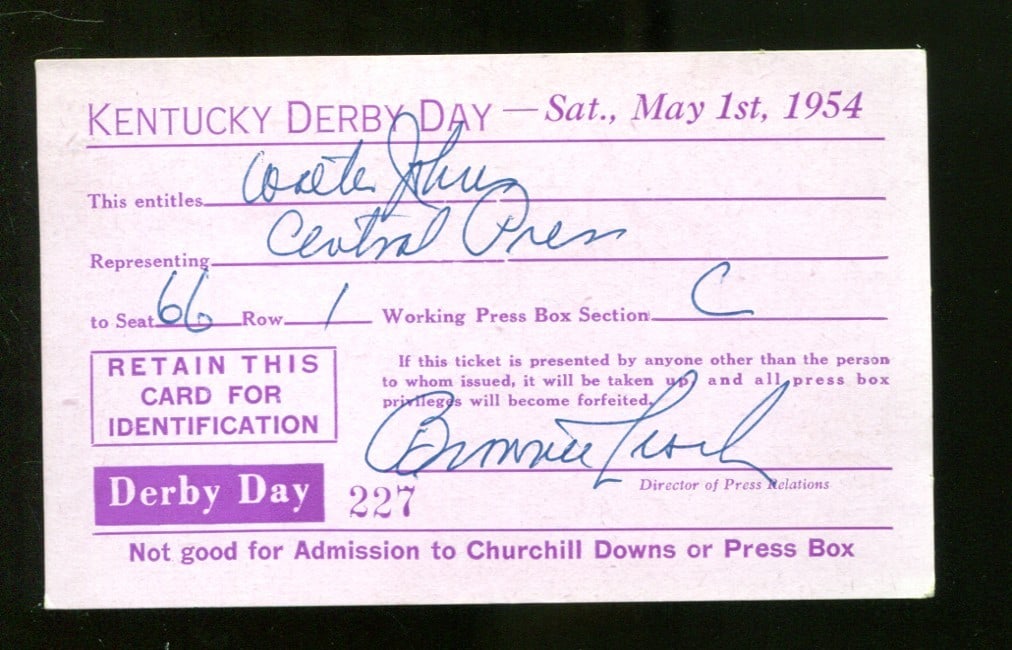 KENTUCKY DERBY DAY — Sat., May 1st, 1954
This entitles Walter Johns
Representing Central Press
to Seat 66 Row 1 Working Press Box Section C
RETAIN THIS
CARD FOR
IDENTIFICATION
If this ticket is presented by anyone other than the person
to whom issued, it will be taken up, and all press box
privileges will become forfeited.
Brownie Leach
Director of Press Relations
Derby Day 227
Not good for Admission to Churchill Downs or Press Box